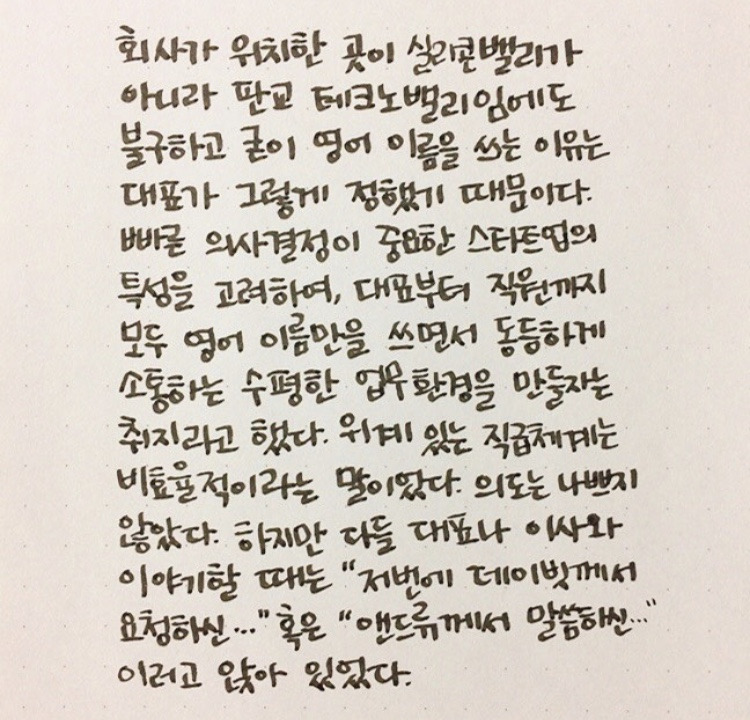 회사가 위치한 곳이 실리콘밸리가
아니라 판교 테크노밸리임에도
불구하고 굳이 영어 이름을 쓰는 이유는
대표가 그렇게 정했기 때문이다.
빠른 의사결정이 중요한 스타트업의
특성을 고려하여, 대표부터 직원까지
모두 영어 이름만을 쓰면서 동등하게
소통하는 수평한 업무환경을 만들자는
취지라고 했다. 위계 있는 직급체계는
비효율적이라는 말이었다. 의도는 나쁘지
않았다. 하지만 다들 대표나 이사와
이야기할 때는 “저번에 데이빗께서
요청하신...” 혹은 “앤드류께서 말씀하신...”
이러고 앉아 있었다.